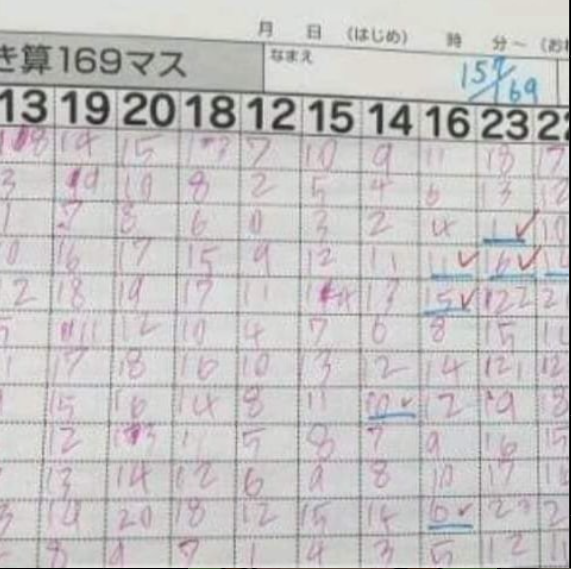 月 日 (はじめ) 時 分~
なまえ
き算169マス
157/169
13 19 20 18 12 15 14 16 23 22
14 15 7 10 9 11 18 17
3 19 10 8 2 5 4 6 13 12
1 7 8 6 0 3 2 4 1 10
0 16 17 15 9 12 11 11 16
2 18 19 17 11 13 15 22
5 11 12 10 4 7 6 8 15
17 18 16 10 13 12 14 21
15 16 14 8 11 10 12 19 18
12 13 11 5 8 7 9 16 15
13 14 12 6 9 8 10 17
3 19 20 18 12 15 14 6 23
8 9 7 1 4 3 5 12 11